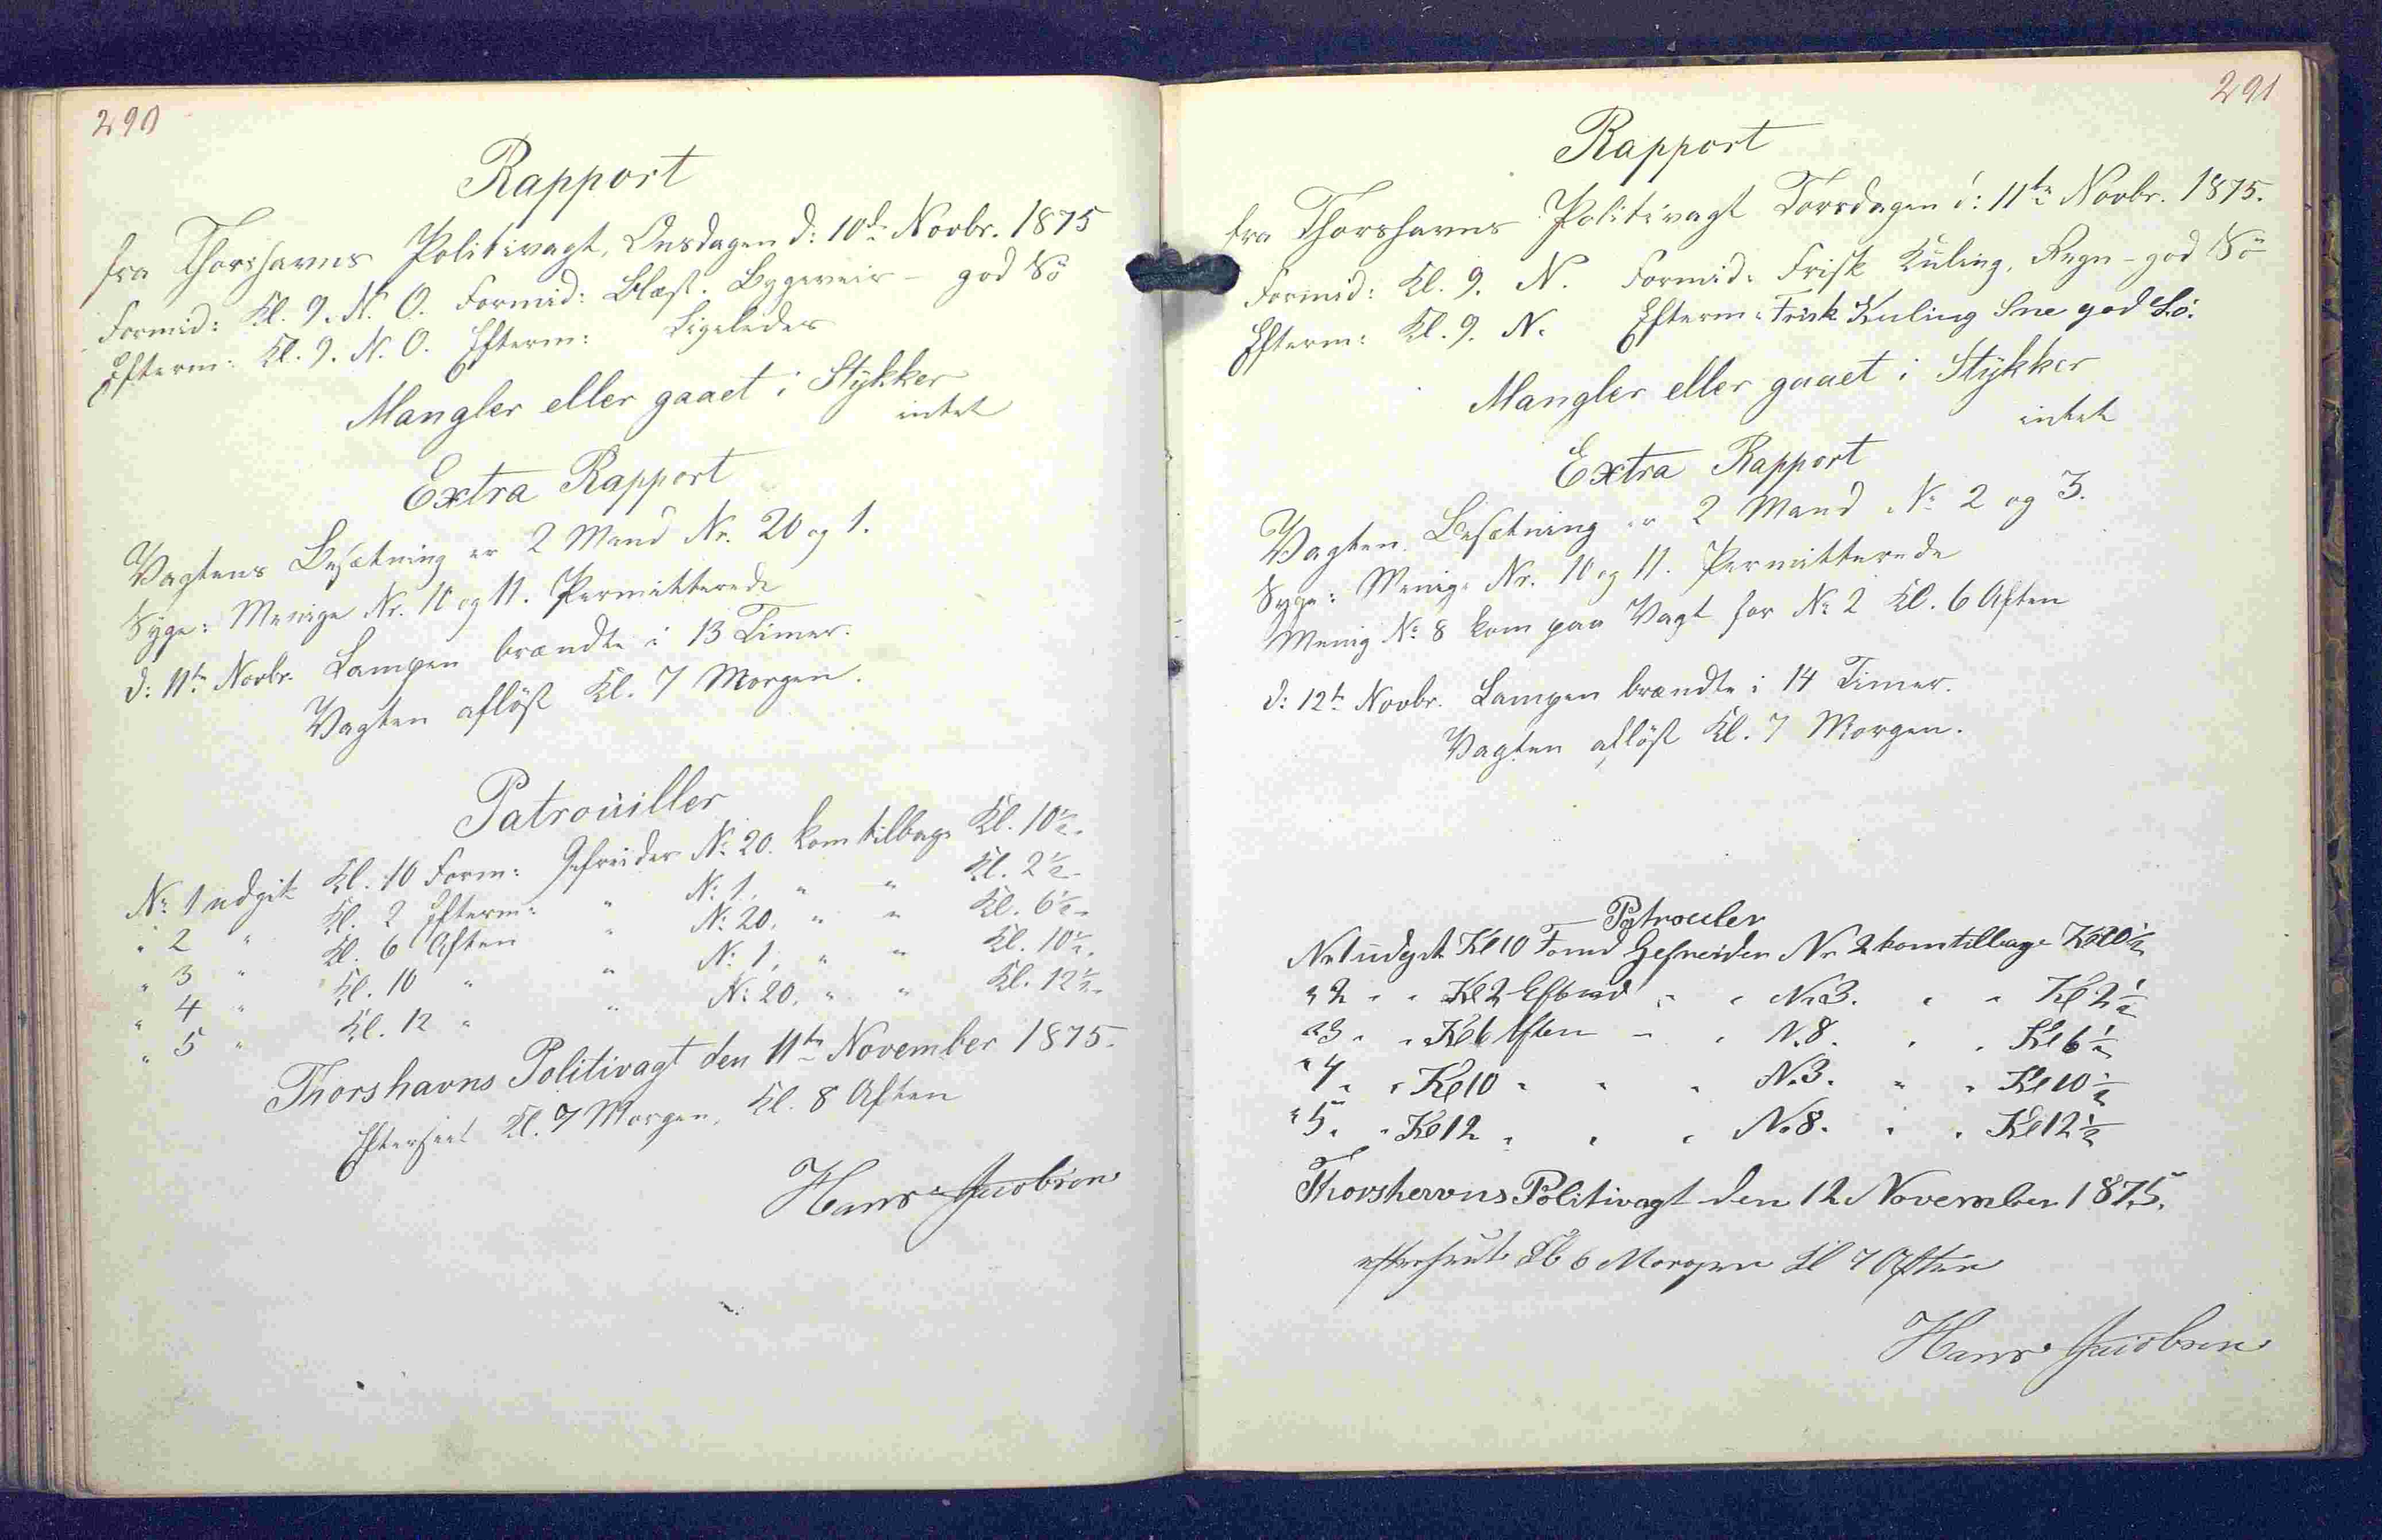 290
Rapport
fra Thorshavns Politivagt, Onsdagen d: 10de Novbr. 1875
Formid: Kl. 9. N. O. Formid: Blæst. Bygeveir - god Sö
Efterm: Kl. 9. N. O. Efterm: Ligeledes
Mangler eller gaaet i Stykker
intet
Extra Rapport
Vagtens Besætning er 2 Mand Nr. 20 og 1.
Syge: Menige Nr. 10 og 11. Permitterede
d: 11te Novbr. Lampen brændte i 13 Timer.
Vagten aflöst Kl. 7 Morgen.
Patrouiller
No 1 udgik Kl. 10 Form: Gefreider No 20. kom tilbage Kl. 10½.
" 2 " Kl. 2 Efterm: " No 1. " " Kl. 2½.
" 3 " Kl. 6 Aften " No 20. " " Kl. 6½.
" 4 " Kl. 10 " " No 1. " " Kl. 10½.
" 5 " Kl. 12 " " No 20. " " Kl. 12½.
Thorshavns Politivagt den 11te November 1875.
Efterseet Kl. 7 Morgen, Kl. 8 Aften
Hans Jacobsen
291
Rapport
fra Thorshavns Politivagt Torsdagen d: 11te Novbr. 1875.
Formid: Kl. 9. N. Formid: Frisk Kuling, Regn - god Sö
Efterm: Kl. 9. N. Efterm: Frisk Kuling Sne god Sö.
Mangler eller gaaet i Stykker
intet
Extra Rapport
Vagten Besætning er 2 Mand No 2 og 3.
Syge: Menige Nr. 10 og 11. Permitterede
Menig No 8 kom paa Vagt for No 2 Kl. 6 Aften
d: 12te Novbr. Lampen brændte i 14 Timer.
Vagten aflöst Kl. 7 Morgen.
Patrouler
Nr 1 udgik Kl 10 Fomd Gefreider Nr 2 kom tilbage Kl 10½
" 2 " " Kl 2 Eftmd " " Nr 3. " " Kl 2½
" 3 " " Kl 6 Aften " " N. 8. " " Kl 6½
" 4 " " Kl 10 " " " N. 3. " " Kl 10½
" 5 " " Kl 12 " " " N. 8. " " Kl 12½
Thorshavns Politivagt den 12 November 1875.
efterseet Kl 6 Morgen Kl 7 Aften
Hans Jacobsen